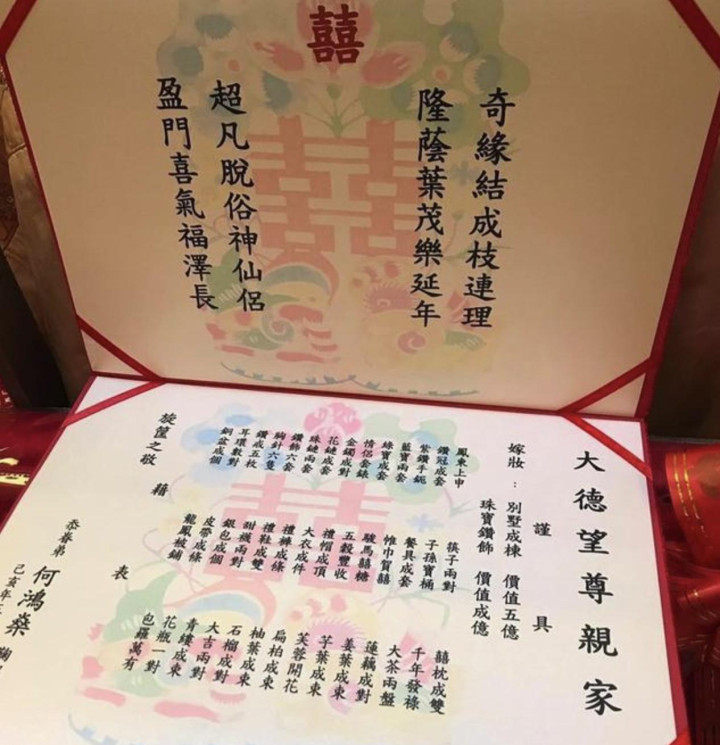 囍
奇緣結成枝連理
隆蔭葉茂樂延年
超凡脫俗神仙侶
盈門喜氣福澤長
大德望尊親家
謹具
嫁妝：別墅成棟 價值五億
珠寶鑽飾 價值成億
鳳柬上申 筷子兩對 囍枕成雙
鑽冠成套 子孫寶桶 千年發祿
紫鑽手鈪 餐具成套 大茶兩盤
藍寶兩套 帷巾賀囍 蓮藕成對
綠寶成套 駿馬囍糖 姜葉成束
情侶套錶 五穀豐收 芋葉成束
金鐲成對 禮帽成頂 芙蓉開花
花鏈成套 大衣成件 扁柏成束
珠鏈兩套 禮褲成條 柚葉成束
鑽飾六套 禮鞋成雙 石榴成對
胸針六隻 甜襪兩對 大吉兩對
鑽戒五枚 銀包成個 青縷成束
耳環數對 皮帶成條 花瓶一對
銅盆成個 龍鳳被鋪 包羅萬有
藉表
旋筐之敬
恭眷弟 何鴻燊 鞠
己亥年三